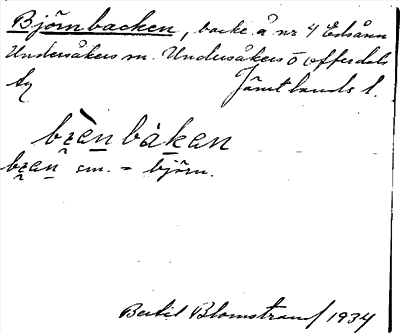 Björnbacken, backe å nr 4 Edsåsen
Undersåkers sn. Undersåkers o Offerdals
tg Jämtlands l.
bræ̀n bàkan
bræn sm. = björn.
Bertil Blomstrand 1934